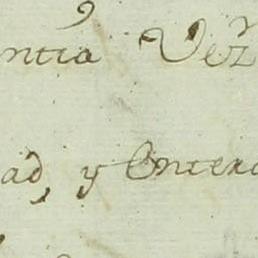 ntia Vez
ad, y Entera